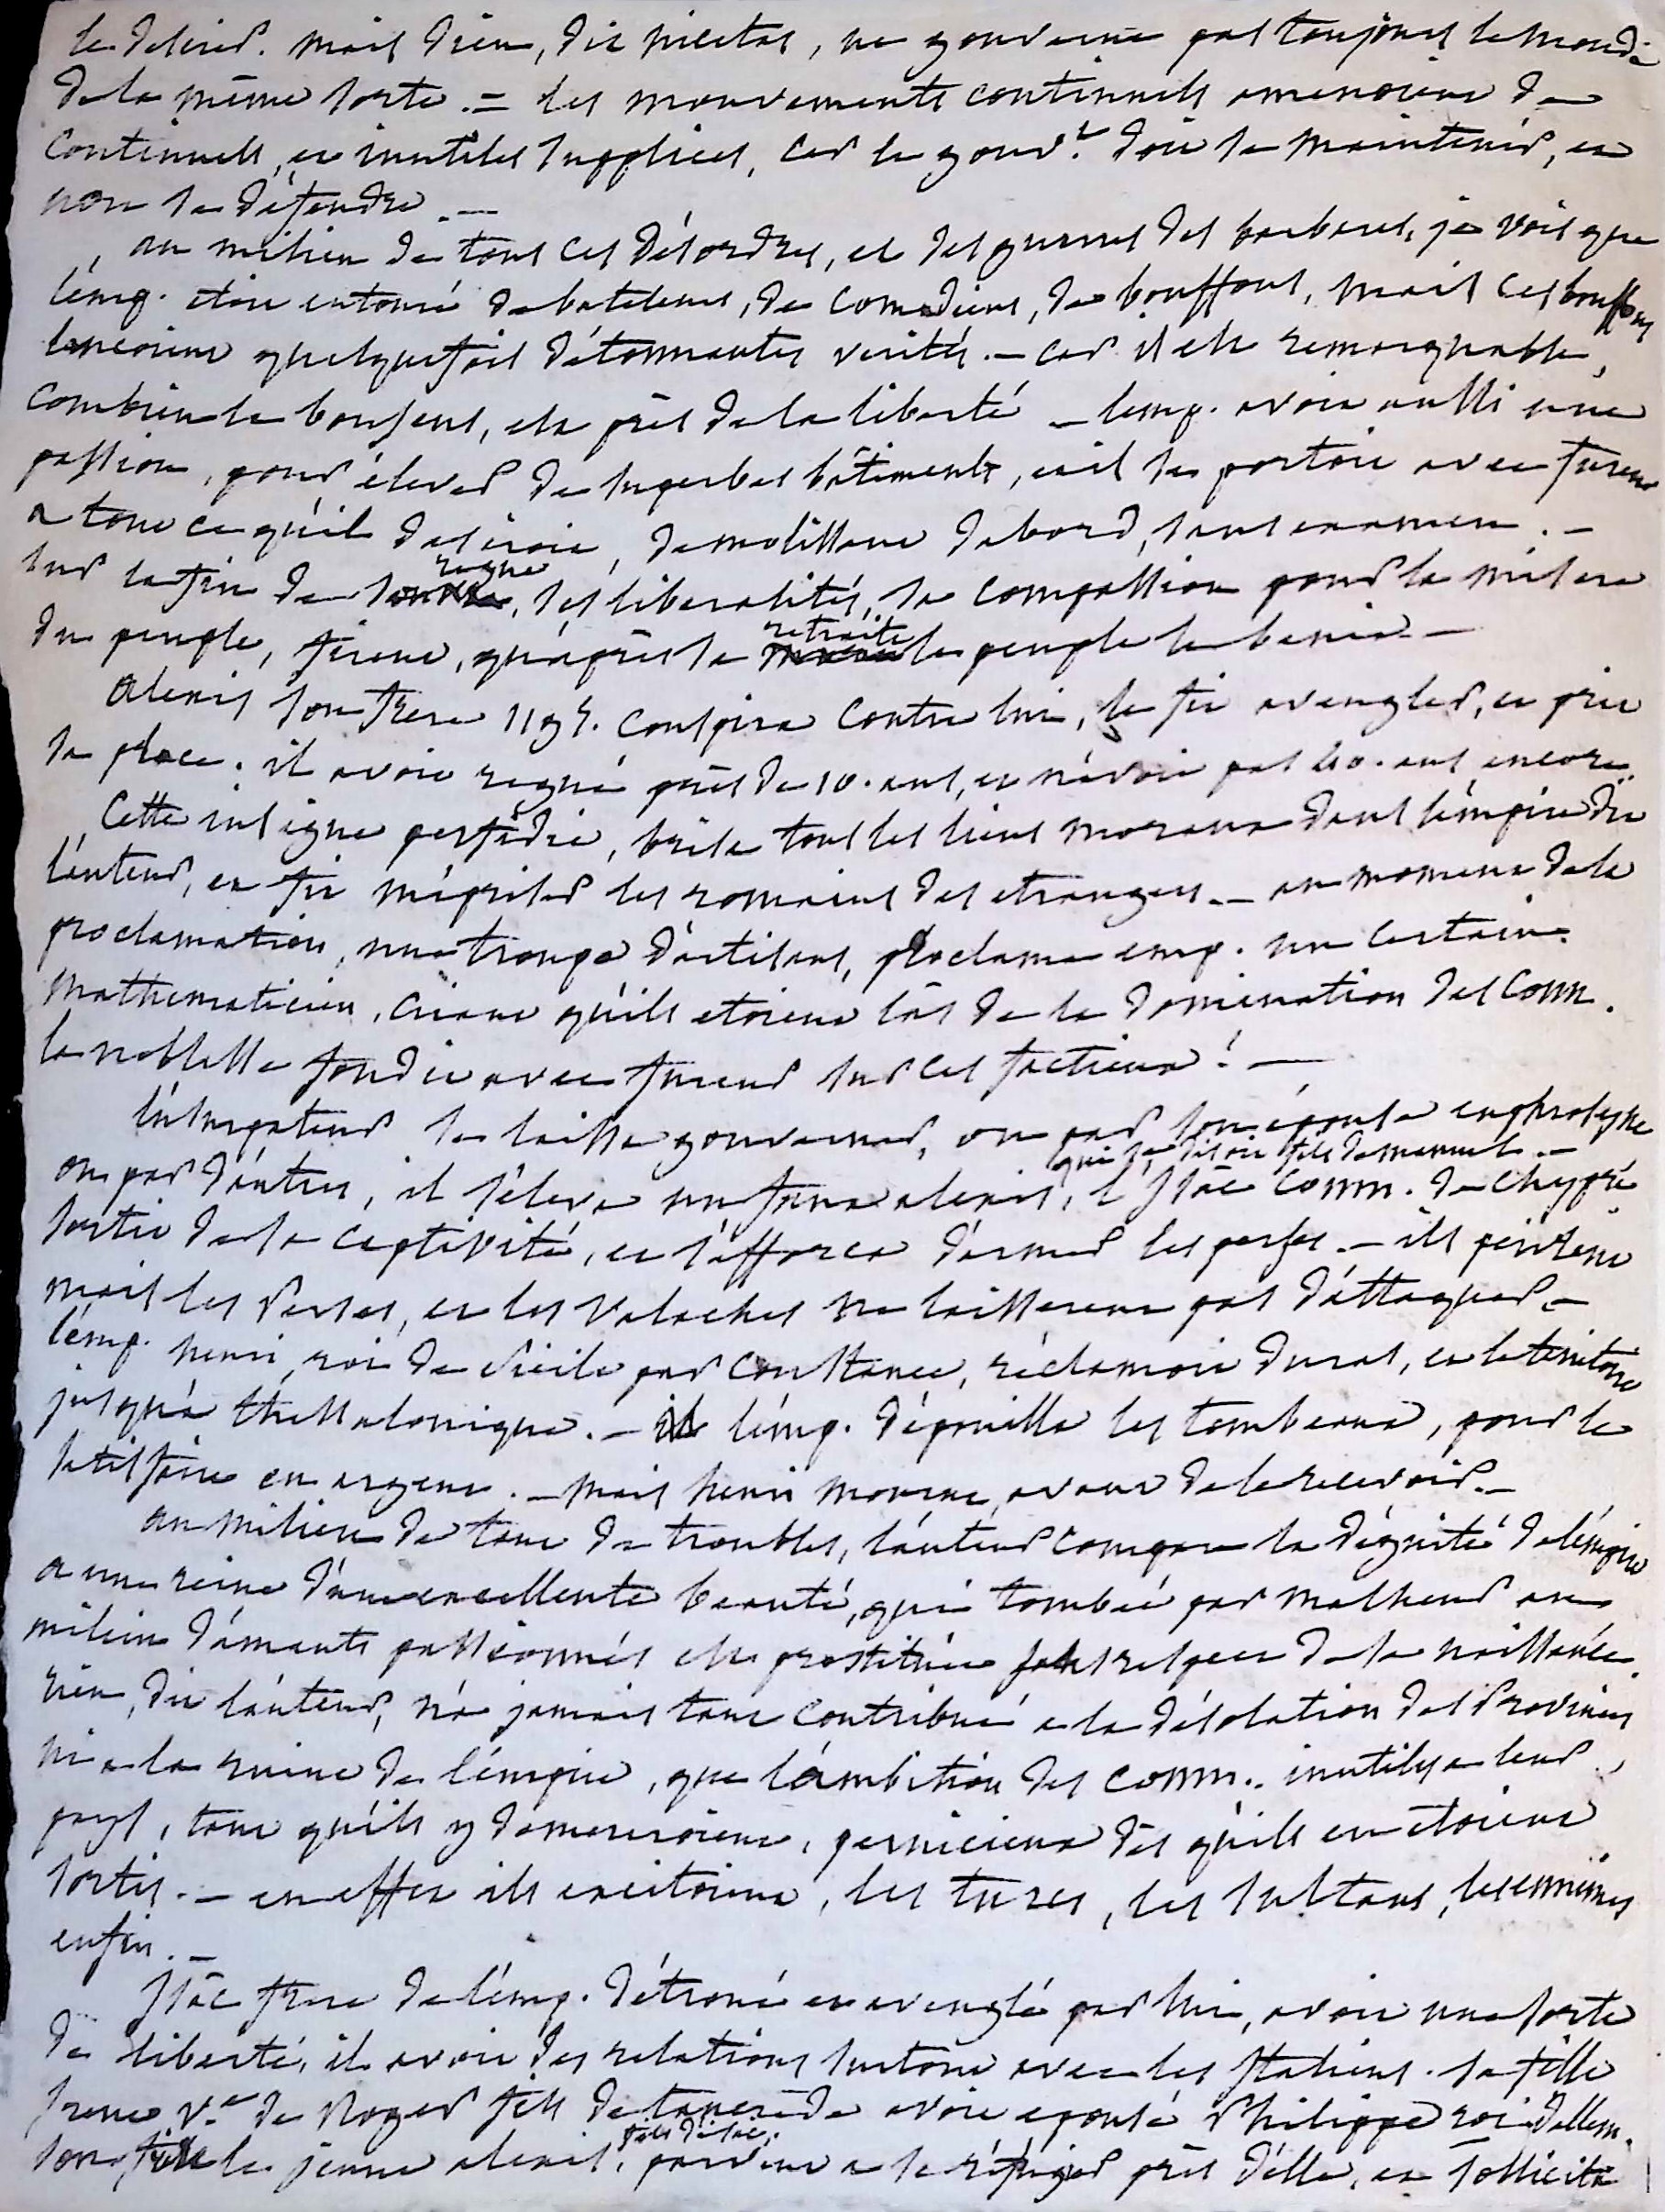 le desird. mais dieu, dit nicetas, ne gouverne pas toujours le monde
de la même sorte. = les mouvements continuels amenoient de
continuels, et inutiles supplices, car le gouv.t doit se maintenir, et
non se défendre. —
au milieu de tous ces désordres, et des guerres des barbares, je vois que
l'emp. étoit entouré de bateleurs, de comediens, de bouffons, mais ces bouffons
lancoient quelquefois d'étonnantes verités. — car il est remarquable,
combien le bon sens, est près de la liberté — l'emp. avoit aussi une
passion, pour élever de superbes bâtiments, et il se portoit avec fureur
a tout ce qu'il desiroit, demolissant d'abord, sans examen. —
sur la fin de son regne, ses liberalités, sa compassion pour la misere
du peuple, firent, qu'après sa retraite le peuple le benit. —
alexis son frere 1195. conspira contre lui, le fit aveugler, et prit
sa place. il avoit regné près de 10. ans, et n'avoit pas 40. ans encore.
Cette insigne perfidie, brisa tous les liens moraux dans l'empire dit
l'auteur, et fit mépriser les romains des etrangers. — au moment de la
proclamation, une troupe d'artisans, proclama emp. un certain
mathematicien, criant qu'ils etoient làs de la domination des Comn.
la noblesse fondit avec fureur sur ces factieux! —
l'usurpateur se laissa gouverner, ou par son épouse euphrosyne
ou par d'autres, il s'eleva un faux alexis, qui se disoit fils de manuel. — Isäc Comn. de Chypre
sortit de sa captivité, et s'efforca d'armer les perses. — ils périrent
mais les Perses, et les Valaches ne laisserent pas d'attaquer. —
l'emp. henri, roi de Sicile par Constance, réclamoit duras, et le territoire
jusqu'à thessalonique. — l'emp. dépouilla les tombeaux, pour le
satisfaire en argent. — mais henri mourut, avant de le recevoir. —
au milieu de tant de troubles, l'auteur compare la dignité de l'empire
a une reine d'une excellente beauté, qui tombée par malheur au
milieu d'amants passionnés est prostituée sans respect de sa naissance.
rien, dit l'auteur, n'a jamais tant contribué a la désolation des Provinces
ni a la ruine de l'empire, que l'ambition des comn.. inutiles a leur
pays, tant qu'ils y demeuroient, pernicieux dès qu'ils en étoient
sortis. — en effet ils excitoient, les turcs, les sultans, les ennemis
enfin. —
Isäc frere de l'emp. détroné et aveuglé par lui, avoit une sorte
de liberté, il avoit des relations surtout avec les Italiens. sa fille
Irene v.ve de Roger fils de tancrede avoit epousé Philippe roi d'allem.
son frere le jeune alexis, fils d'isäc, parvint a se réfugier près d'elle, et sollicita